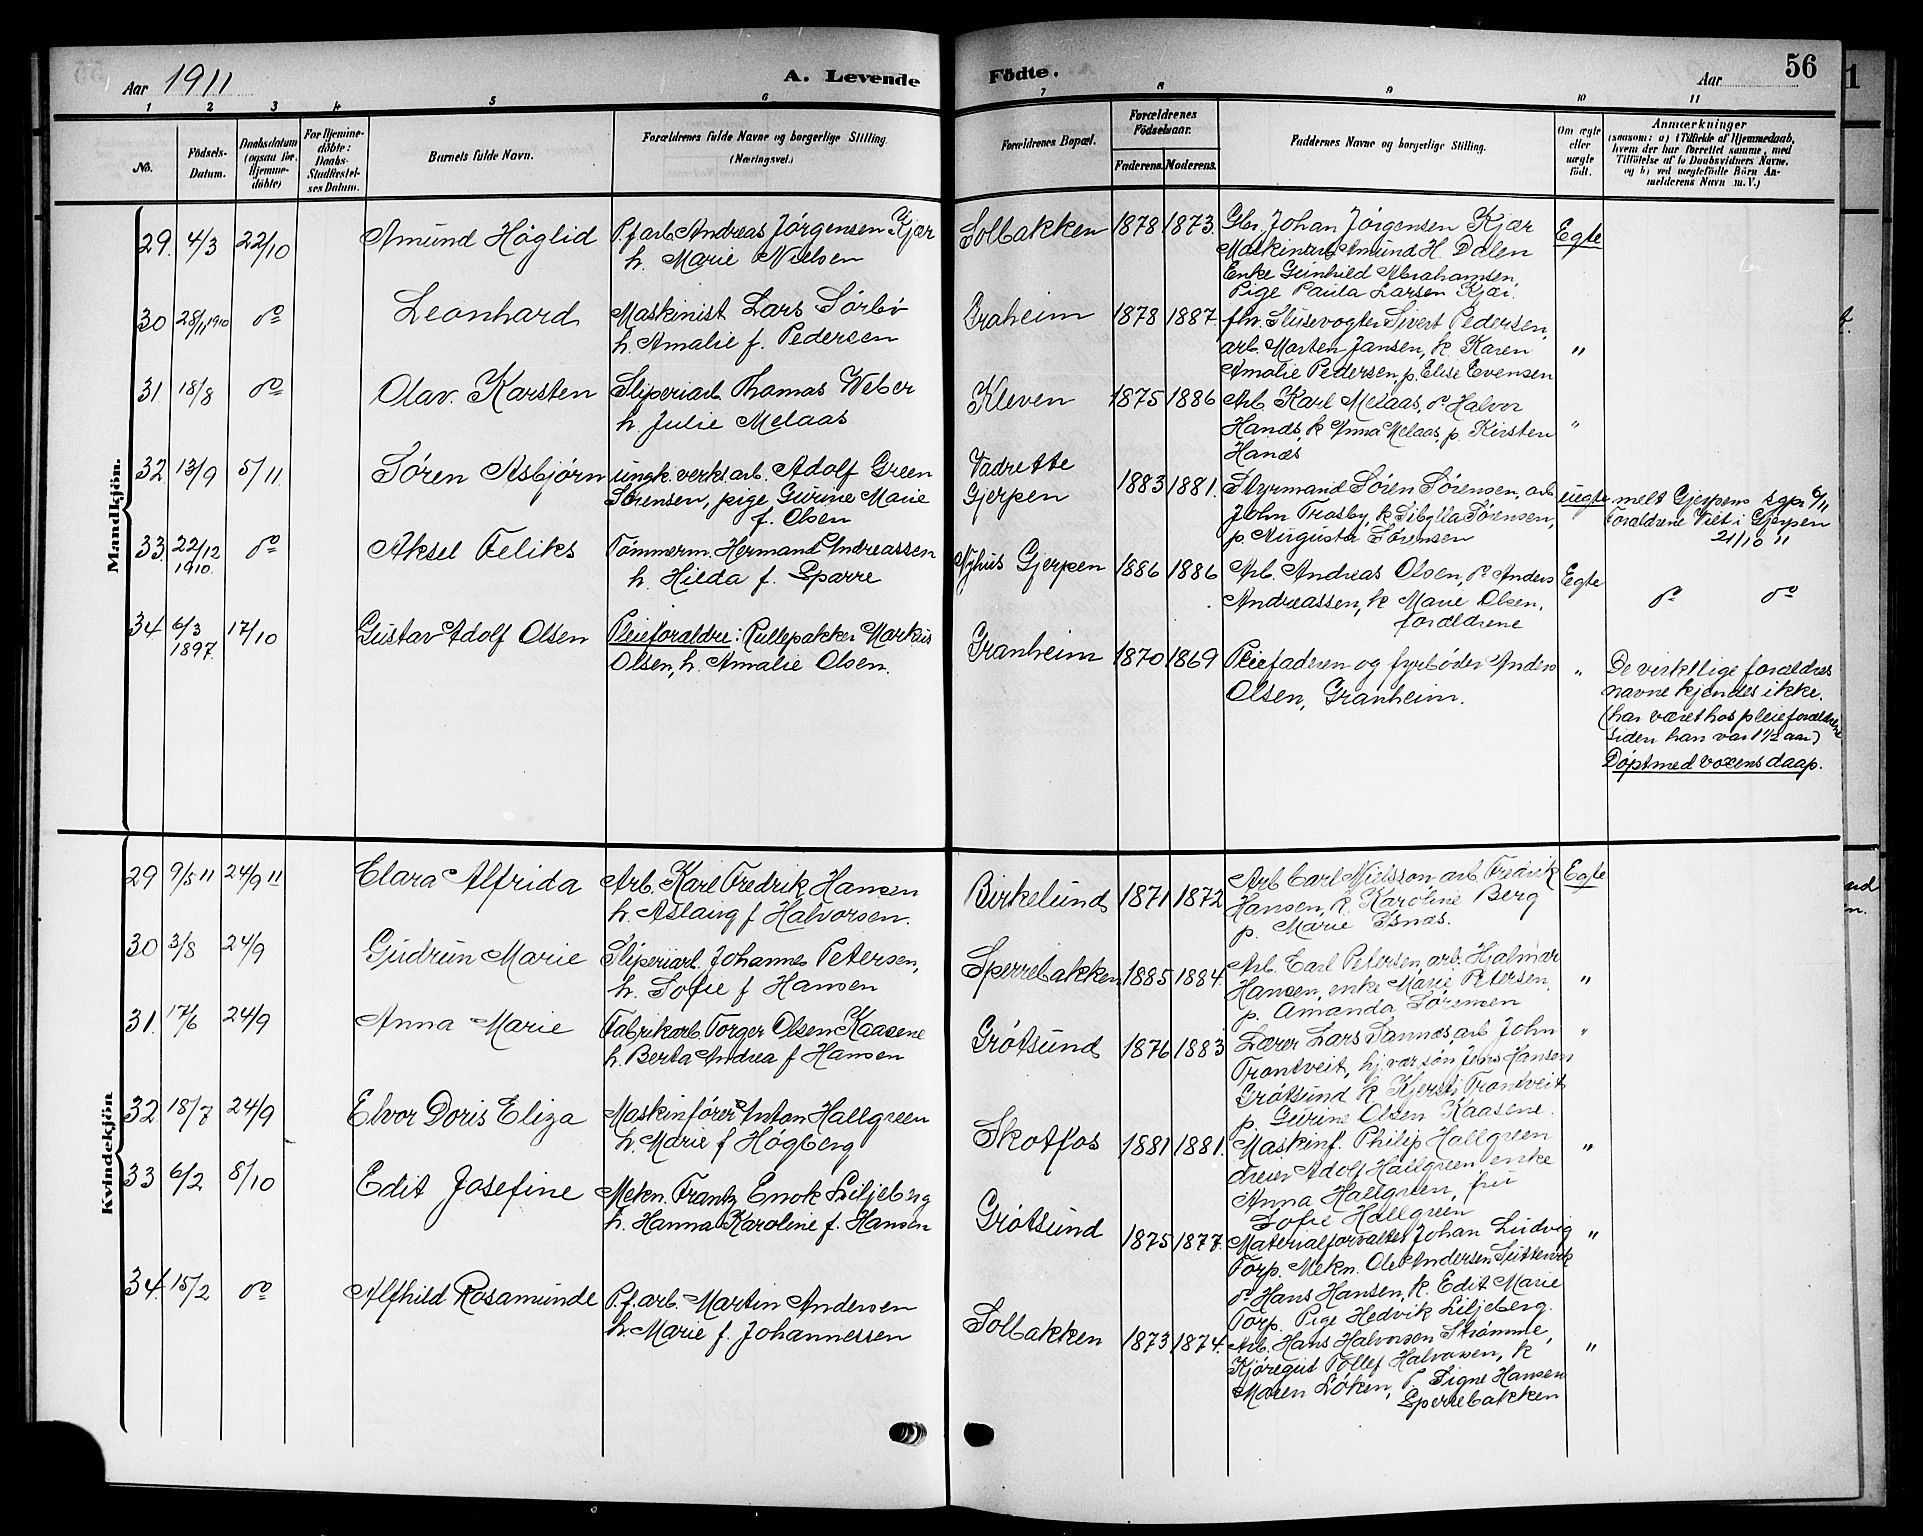 Aar 1911
A. Levende Födte.
Aar
56
1 2 3 4 5 6 7 8 9 10 11
No.
Födsels-Datum.
Daabsdatum (ogsaa for Hjemme-döbte)
For Hjemme-döbte: Daabs-Stadfæstel-ses Datum.
Barnets fulde Navn.
Forældrenes fulde Navne og borgerlige Stilling. (Næringsvei.)
Forældrenes Bopæl.
Forældrenes Födselsaar.
Faderens. Moderens.
Faddernes Navne og borgerlige Stilling.
Om ægte eller uægte födt.
Anmærkninger
(saasom: a) i Tilfælde af Hjemmedaab, hvem der har forrettet samme, med Tilföielse af to Daabsvidners Navne, og b) ved uægtefödte Börn An-melderens Navn m.V.)
Mandkjön.
29. 4/3 22/10 Amund Höglid
P.f.arb. Andreas Jørgensen Kjær
h. Marie Nielsen
Solbakken 1878 1873.
Gbr. Johan Jørgensen Kjær
Maskinarb. Amund H. Dalen
Enke Gunhild Abrahamsen,
Pige Paula Larsen Kjær.
Egte
30 28/11 1910 do Leonhard
Maskinist Lars Sørbø
h. Amalie f. Pedersen
Graheim 1878 1887
fhv. Slusevogter Sivert Pedersen,
arb. Morten Jansen, k. Karen
Amalie Pedersen, p. Elise Evensen
"
31. 18/8 do Olav. Karsten
Sliperiarb. Thomas Weber
h. Julie Melaas
Kleven 1875 1886
Arb. Karl Melaas, do Halvor
Hanås, k Anna Melaas, p. Kirsten
Hanås
"
32 13/9 5/11 Søren Asbjørn
ungk. verkst.arb. Adolf Green
Sørensen, pige Gurine Marie
f. Olsen
Vadrette
Gjerpen 1883 1881.
Styrmand Søren Sørensen, arb
John Trosby, k Sibylla Sørensen,
p. Augusta Sørensen
uegte
melt Gjerpens sgpr 6/11
Forældrene viet i Gjerpen
21/10 11
33. 22/12 1910. do Aksel Feliks
Tømmerm. Hermand Andreassen
h. Hilda f. Sparre
Nyhus Gjerpen 1886 1886
Arb. Andreas Olsen, do Anders
Andreassen, k Marie Olsen,
forældrene
Egte
do do
34 6/3 1897. 17/10 Gustav Adolf Olsen
Pleieforældre: Rullepakker Markus
Olsen, h. Amalie Olsen.
Granheim 1870 1869
Pleiefaderen og fyrbøder Anders
Olsen, Granheim.
"
De virkelige forældres
navne kjendes ikke.
(har været hos pleieforældrene
siden han var 1 1/2 aar)
Døpt med voxens daap.
Kvindekjön
29 9/5 11 24/9 11 Clara Alfrida
Arb. Karl Fredrik Hansen
h. Aslaug f Halvorsen.
Birkelund 1871 1872
Arb Carl Nielsson arb. Fredrik
Hansen, k. Karoline Berg
p. Marie Isnæs.
Egte
30 3/8 24/9 Gudrun Marie
Sliperiarb. Johannes Petersen,
h. Sofie f Hansen
Sperrebakken 1885 1884.
Arb. Carl Petersen, arb. Hjalmar
Hansen, enke Marie Petersen,
p. Amanda Sørensen
"
31. 17/6 24/9 Anna Marie
Fabrikarb. Torger Olsen Kaasene
h. Berta Andrea f Hansen
Grøtsund 1876 1883
Lærer Lars Sannæs, arb John
Trontveit, hj. vær. søn Jens Hansen
Grøtsund k Kjersti Trontveit
p. Gurine Olsen Kaasene.
"
32 18/7 24/9 Elvor Doris Eliza
Maskinfører Anton Hallgreen
h. Marie f Högberg
Skotfos 1881 1881.
Maskinf. Philip Hallgreen
dreier Adolf Hallgreen, enke
Anna Hallgreen, fru
Sofie Hallgreen
"
33 6/2 8/10 Edit Josefine
Mekn. Frantz Enok Liljeberg
h. Hanna Karoline f. Hansen
Grøtsund 1875 1877.
Materialforvalter Johan Ludvig
Torp. Mekn. Ole Andersen
do Hans Hansen, k. Edit Marie
Torp. Pige Hedvik Liljeberg.
"
34. 15/2 do Alfhild Rosamunde
P.f.arb. Martin Andersen
h. Marie f. Johannessen
Solbakken 1873 1874.
Arb. Hans Halvorsen Strømme,
Kjøregut Tollef Halvorsen, k
Maren Løken, p Signe Hansen
Sperrebakken
"